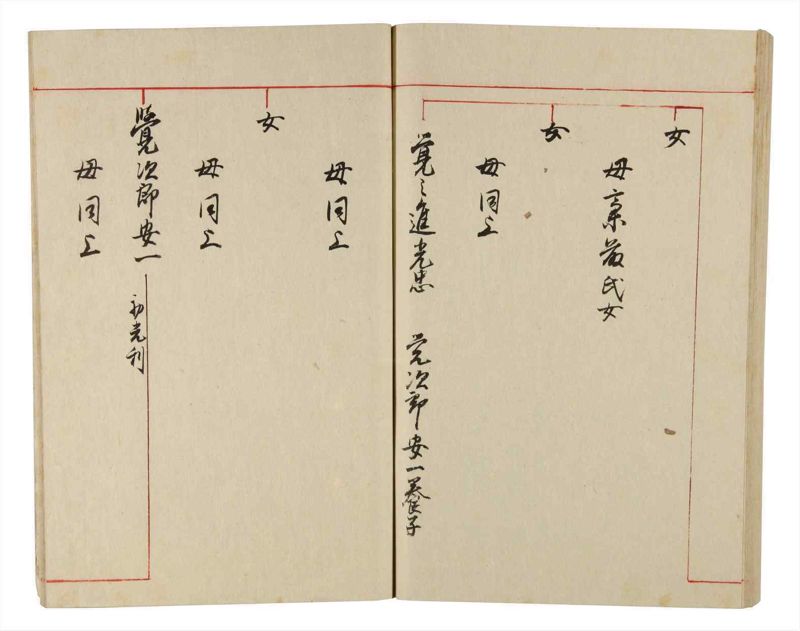 女
母斎藤氏女
女
母同上
覚之進光忠 覚次郎安一養子
母同上
女
母同上
覺次郎安一 初光利
母同上